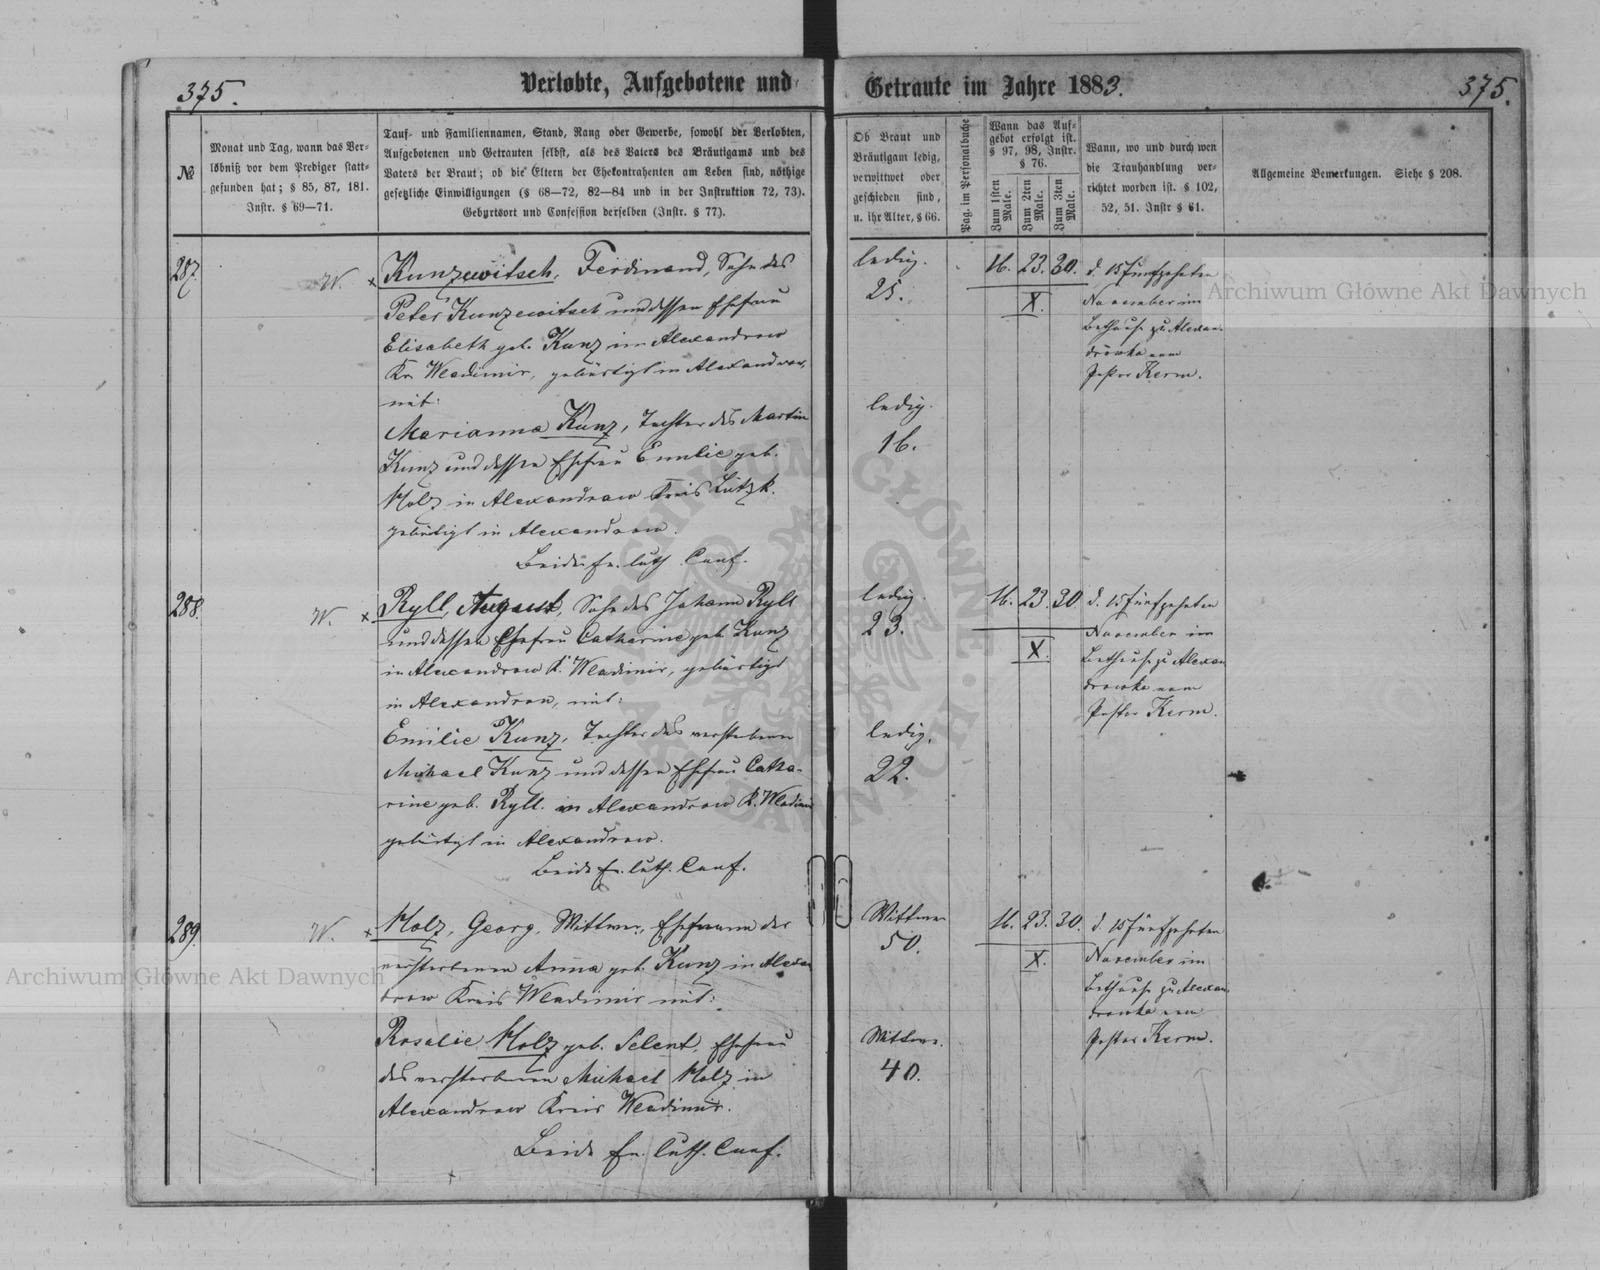 375.
Verlobte, Aufgebotene und
Getraute im Jahre 1883.
375.
№
Monat und Tag, wann das Ver-
löbniß vor dem Prediger statt-
gefunden hat; § 85, 87, 181.
Instr. § 69—71.
Tauf- und Familiennamen, Stand, Rang oder Gewerbe, sowohl der Verlobten,
Aufgebotenen und Getrauten selbst, als des Vaters des Bräutigams und des
Vaters der Braut; ob die Eltern der Ehekontrahenten am Leben sind, nöthige
gesetzliche Einwilligungen (§ 68—72, 82—84 und in der Instruktion 72, 73).
Geburtsort und Confession derselben (Instr. § 77).
Ob Braut und
Bräutigam ledig,
verwittwet oder
geschieden sind,
u. ihr Alter, § 66.
Pag. im Personalbuche
Wann das Auf-
gebot erfolgt ist.
§ 97, 98, Instr.
§ 76.
Zum 1sten Male.
Zum 2ten Male.
Zum 3ten Male.
Wann, wo und durch wen
die Trauhandlung ver-
richtet worden ist. § 102,
52, 51. Instr § 61.
Allgemeine Bemerkungen. Siehe § 208.
287.
W. x
Kunzewitsch, Ferdinand, Sohn des
Peter Kunzewitsch und dessen Ehefrau
Elisabeth geb. Kunz in Alexandrow
Kr. Wladimir, gebürtigt in Alexandrow,
mit:
Marianna Kunz, Tochter des Martin
Kunz und dessen Ehefrau Emilie geb.
Holz in Alexandrow Kreis Lutzk.
gebürtigt in Alexandrow.
Beide ev. luth. Conf.
ledig.
25.
ledig.
16.
16. 23. 30.
X.
d. 15 Fünfzehnten
November im
Bethause zu Alexan-
drowka vom
Pastor Kerm.
288.
W. x
Ryll, August, Sohn des Johann Ryll
und dessen Ehefrau Catharine geb. Kunz
in Alexandrow K. Wladimir, gebürtigt
in Alexandrow, mit:
Emilie Kunz, Tochter des verstorbenen
Michael Kunz und dessen Ehefrau Catha-
rine geb. Ryll. in Alexandrow K. Wladimir
gebürtigt in Alexandrow.
Beide ev. luth. Conf.
ledig.
23.
ledig.
22.
16. 23. 30.
X.
d. 15 Fünfzehnten
November im
Bethause zu Alexan
drowka vom
Pastor Kerm.
289.
W. x
Holz, Georg, Wittwer, Ehemann der
verstorbenen Anna geb. Kunz in Alexan
drow Kreis Wladimir mit:
Rosalie Holz geb. Selent, Ehefrau
des verstorbenen Michael Holz in
Alexandrow Kreis Wladimir.
Beide ev. luth. Conf.
Wittwer
50.
Wittwe.
40.
16. 23. 30.
X.
d. 15 Fünfzehnten
November im
Bethause zu Alexan
drowka vom
Pastor Kerm.
Archiwum Główne Akt Dawnych
Archiwum Główne Akt Dawnych
ARCHIWUM GŁÓWNE AKT DAWNYCH